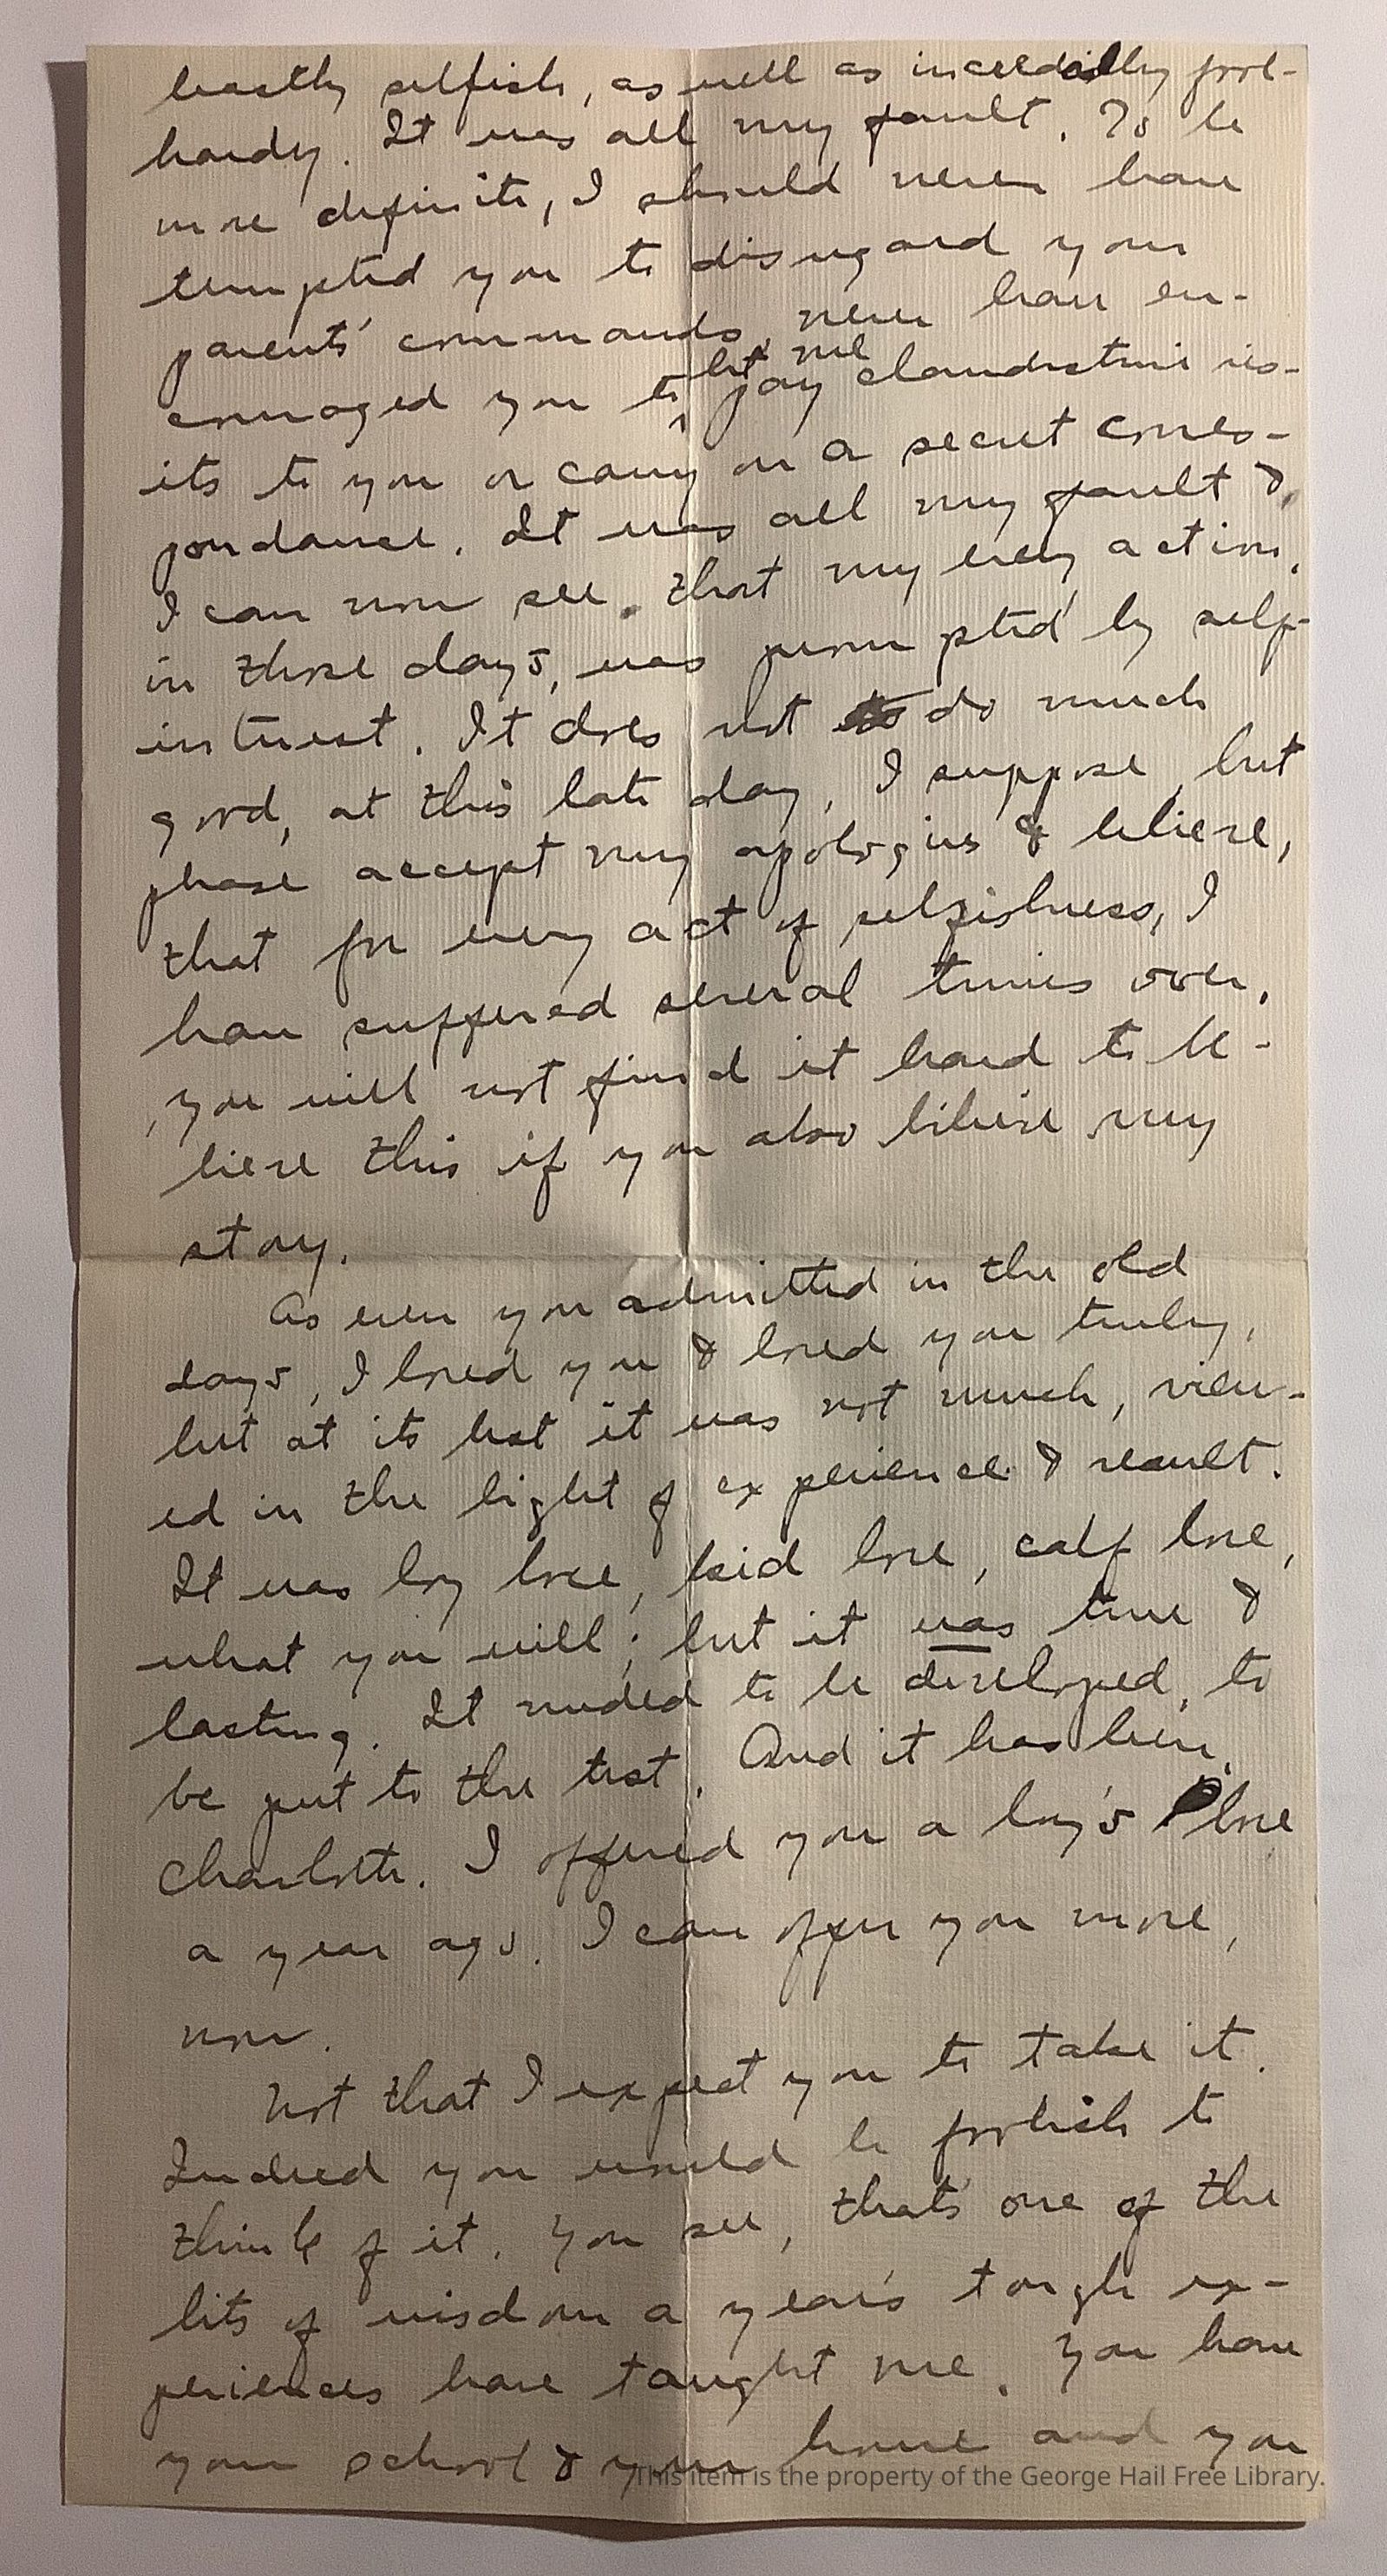 beastly selfish, as well as incredibly fool-
hardy. It was all my fault. To be
more definite, I should never have
tempted you to disregard your
parents' commands, never have en-
couraged you to let me pay clandestine vis-
its to you or carry on a secret corres-
pondance. It was all my fault &,
I can now see, that my every action,
in those days, was prompted by self-
interest. It does not do much
good, at this late day, I suppose, but
please accept my apologies & believe,
that for every act of selfishness, I
have suffered several times over.
You will not find it hard to be-
lieve this if you also believe my
story.
As even you admitted in the old
days, I loved you & loved you truly,
but at its best it was not much, view-
ed in the light of experience & result.
It was boy love, kid love, calf love,
what you will; but it was true &
lasting. It needed to be developed, to
be put to the test. And it has been,
Charlotte. I offered you a boy's love
a year ago. I can offer you more,
now.
Not that I expect you to take it.
Indeed you would be foolish to
think of it. You see, that's one of the
bits of wisdom a year's tough ex-
periences have taught me. You have
your school & your home and you
This item is the property of the George Hail Free Library.